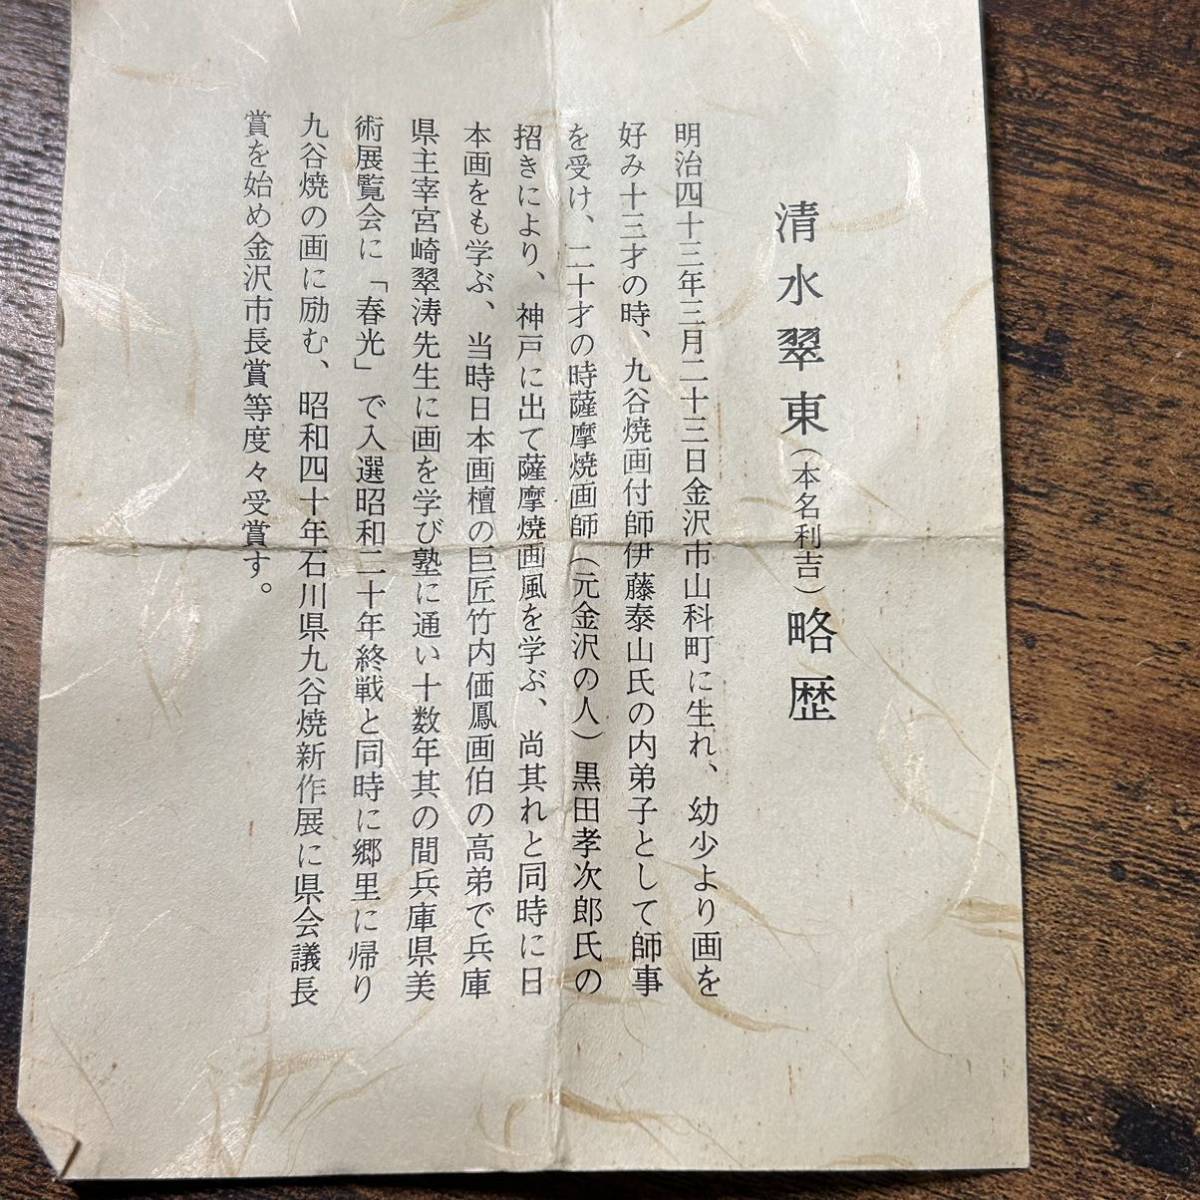 清水翠東（本名利吉）略歴
明治四十三年三月二十三日金沢市山科町に生れ、幼少より画を
好み十三才の時、九谷焼画付師伊藤泰山氏の内弟子として師事
を受け、二十才の時薩摩焼画師（元金沢の人）黒田孝次郎氏の
招きにより、神戸に出て薩摩焼画風を学ぶ、尚其れと同時に日
本画をも学ぶ、当時日本画檀の巨匠竹内価鳳画伯の高弟で兵庫
県主宰宮崎翠涛先生に画を学び塾に通い十数年其の間兵庫県美
術展覧会に「春光」で入選昭和二十年終戦と同時に郷里に帰り
九谷焼の画に励む、昭和四十年石川県九谷焼新作展に県会議長
賞を始め金沢市長賞等度々受賞す。